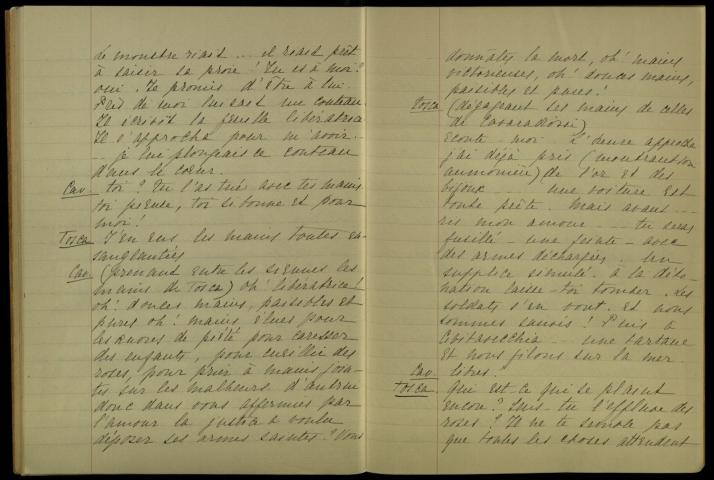 Le monstre riait .... il riait prêt
à saisir sa proie ! Tu es à moi ?
oui. Je promis d'être à lui.
Près de moi luisait un couteau
Il écrivit la feuille libératrice
Il s'approcha pour m'avoir ..
... je lui plongeais ce couteau
dans le cœur.
Cav. toi ? Tu l'as tué avec tes mains
toi pieuse, toi si bonne et pour
moi !
Tosca J'en eus les mains toutes en-
sanglantées
Cav. (prenant entre les siennes les
mains de Tosca) oh ! libératrice !
oh ! douces mains, paisibles et
pures oh ! mains élues pour
les œuvres de piété pour caresser
des enfants, pour cueillir des
roses, pour prier à mains join-
tes sur les malheurs d'autrui
donc dans vous affermies par
l'amour la justice a voulu
déposer ses armes saintes ? Vous
donnâtes la mort, oh ! mains
victorieuses, oh ! douces mains,
paisibles et pures !
Tosca (dégageant ses mains de celles
de Cavaradossi)
Ecoute-moi L'heure approche
j'ai déjà pris (montrant son
aumonière) de l'or et des
bijoux ... une voiture est
toute prête. Mais avant ...
ris mon amour ... tu seras
fusillé - une feinte - avec
des armes déchargées. Un
supplice simulé. à la déto-
nation laisse-toi tomber. Les
soldats s'en vont. Et nous
sommes sauvés ! Puis à
Civitavecchia ... une tartane
et nous filons sur la mer
Cav. libres !
Tosca. Qui est-ce qui se plaint
encore ? Sens-tu l'effluve des
roses ? Il ne te semble pas
que toutes les choses attendent